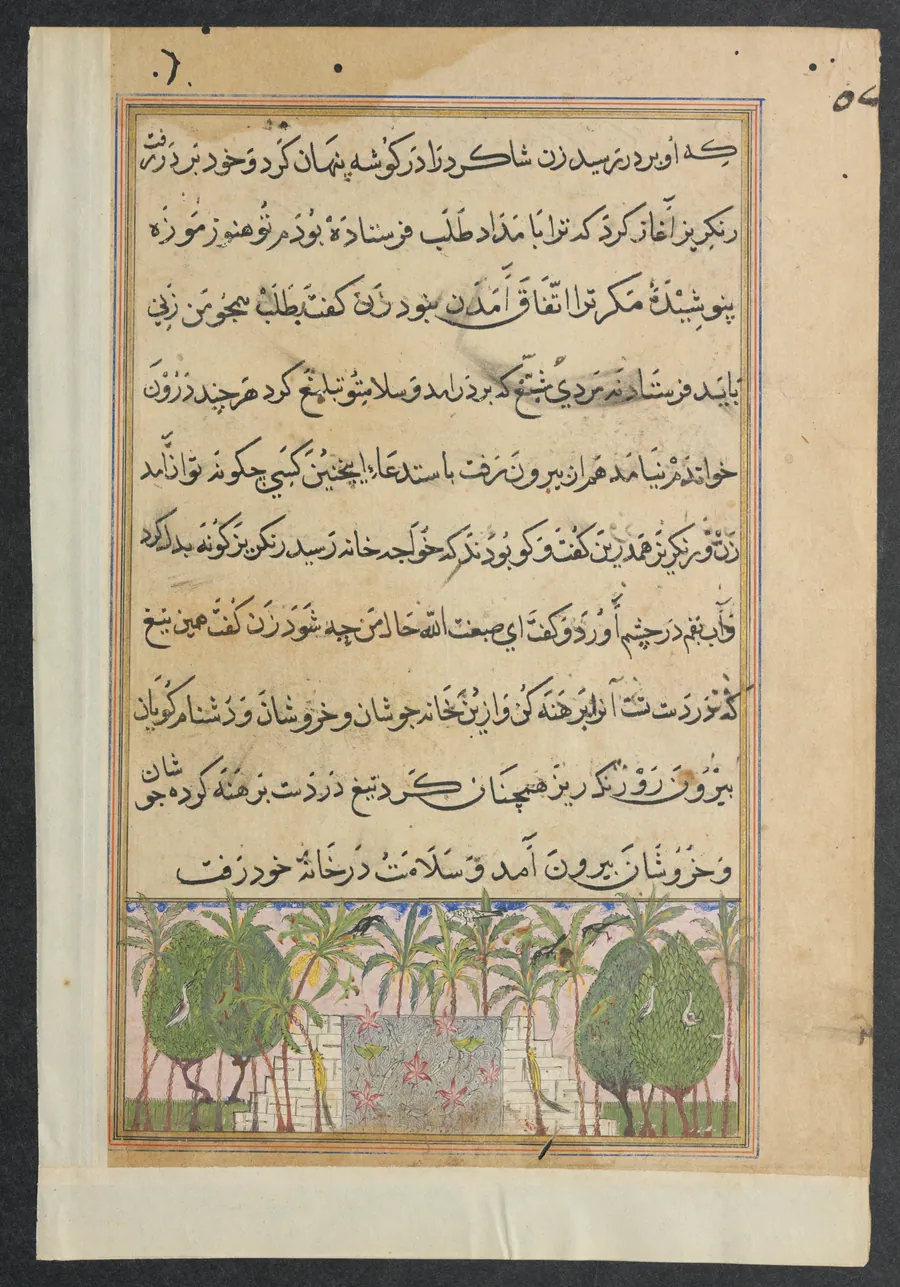 که او بر در رسید زن شاکرد را در کوشه پنهان کرد و خود بر در رفت
رنکریز آغاز کرد که ترا بامداد طلب فرستاده بودم تو هنوز موزه
پنوشیدهٔ مکر ترا اتّفاق آمدن نبود زن کفت بطلب همچو من زنی
باید فرستاد نه مردی که بر در امد و سلام تو تبلیغ کرد هر چند درون
خواندم نیامد هم از بیرون برفت باستدعاء اینچنین کسی چکونه توان آمد
زن و رنکریز همدرین کفت و کو بودند که خواجه خانه رسید رنکریز کونه بدل کرد
و آب بقم در چشم آورد و کفت ای صبغت الله حال من چه شود زن کفت همین تیغ
که در دست تست آنرا برهنه کن و ازین خانه جوشان و خروشان و دشنام کویان
بیرون رو رنکریز همچنان کرد تیغ در دست برهنه کرده جوشان
و خروشان بیرون آمد و سلامت در خانهٔ خود رفت